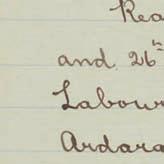 Rea
and 26th
Labour
Ardara